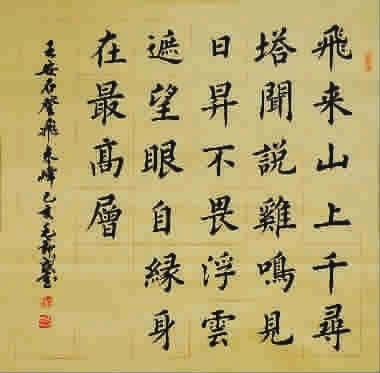 飛来山上千尋
塔聞説雞鳴見
日昇不畏浮雲
遮望眼自縁身
在最高層
王安石登飛来峰己亥